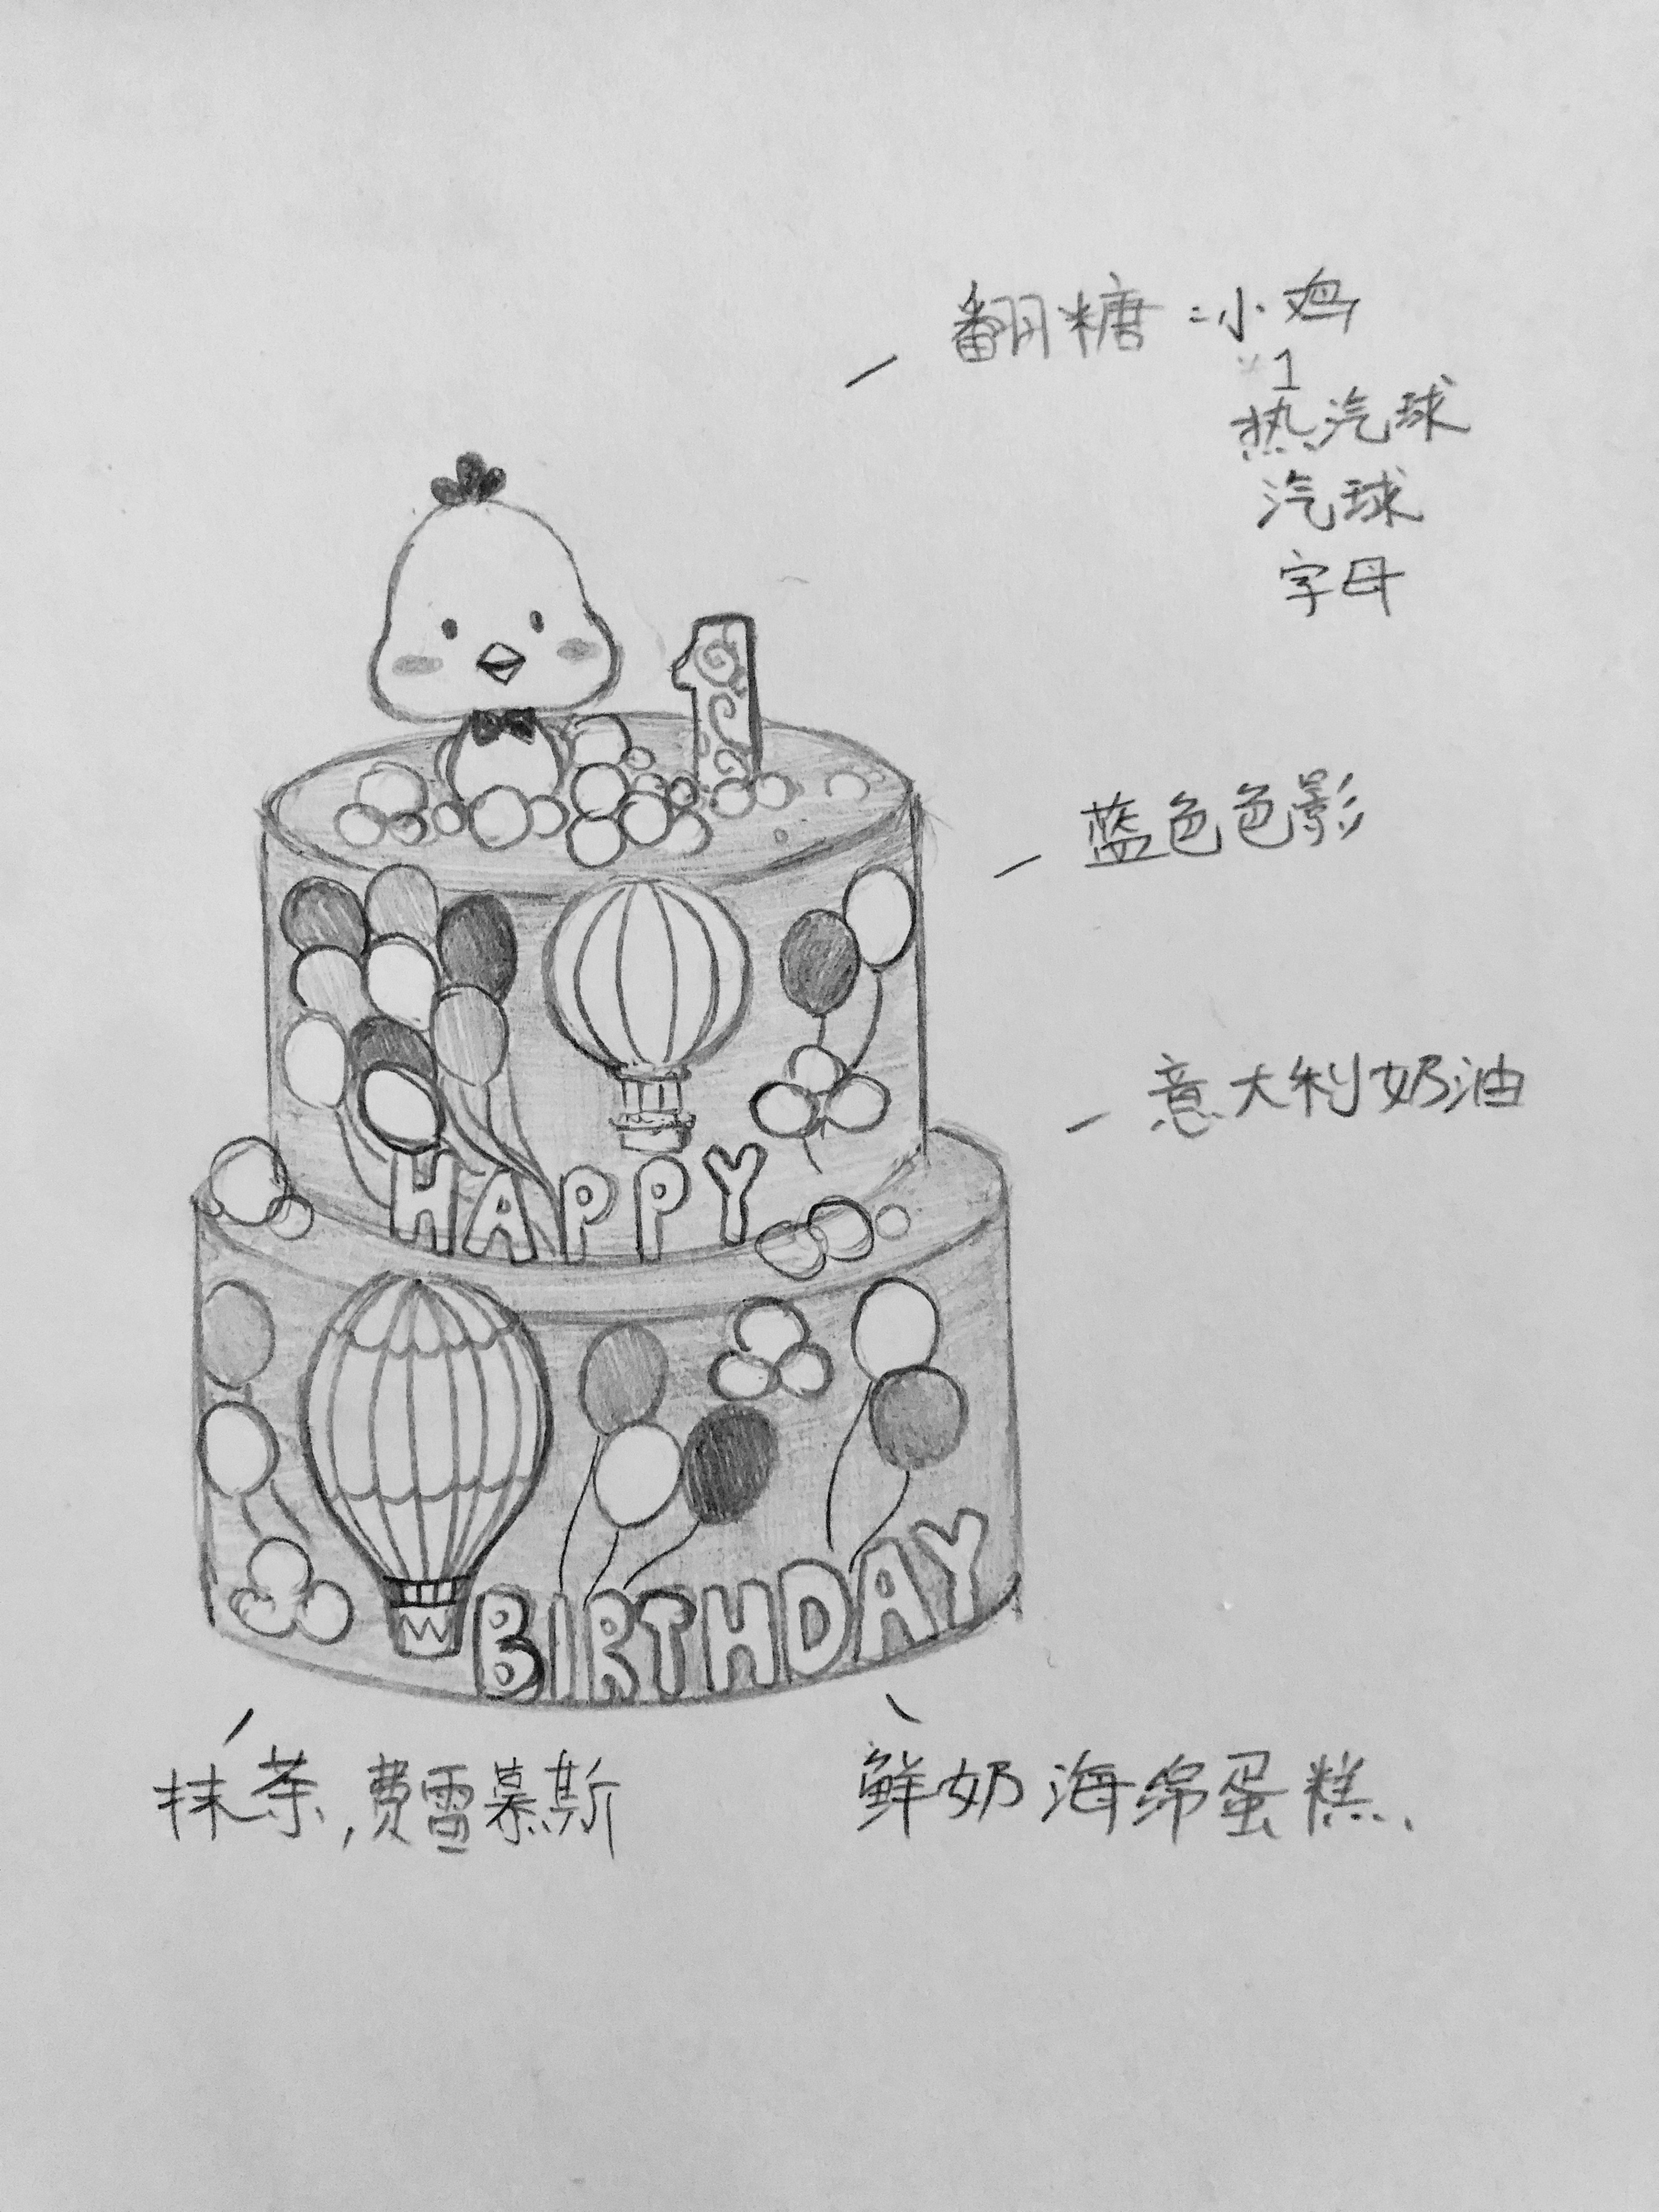 翻糖:小鸡
1
热汽球
汽球
字母
1
蓝色色影
意大利奶油
HAPPY
BIRTHDAY
抹茶,费雪慕斯
鲜奶海绵蛋糕.